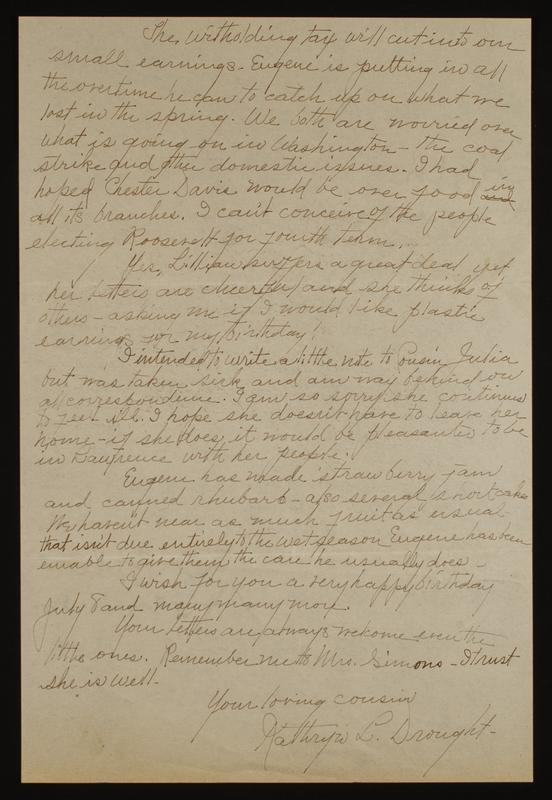 The witholding tax will cut into our
small earnings. Eugene is putting in all
the overtime he can to catch up on what we
lost in the spring. We both are worried over
what is going on in Washington - The coal
strike and other domestic issues. I had
hoped Chester Davis would be over food in
all its branches. I can't conceive of the people
electing Roosevelt for fourth term.
Yes, Lillian suffers a great deal yet
her letters are cheerful and she thinks of
others - asking me if I would like plastic
earrings for my birthday!
I intended to write a little note to Cousin Julia
but was taken sick and am way behind on
all correspondence. I am so sorry she continues
to feel ill. I hope she doesn't have to leave her
home - if she does, it would be pleasanter to be
in Lawrence with her people.
Eugene has made strawberry jam
and canned rhubarb - also several shortcakes
We havent near as much fruit as usual -
that isn't due entirely to the wet season Eugene has been
unable to give them the care he usually does -
I wish for you a very happy birthday
July 8 and many many more.
Your letters are always welcome even the
little ones. Remember me to Mrs. Simons - I trust
she is well -
Your loving cousin
Kathryn L. Drought -